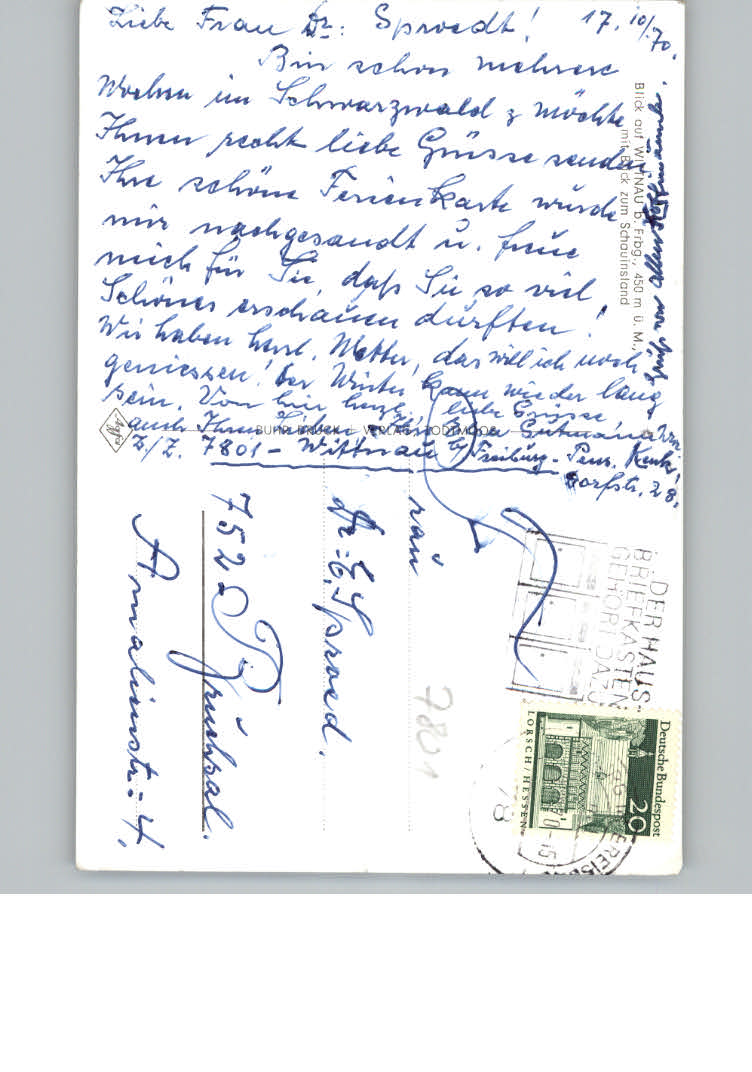 17. 10/70.
Liebe Frau Dr: Sproedt!
Bin schon mehrere
Wochen im Schwarzwald & möchte
Ihnen recht liebe Grüsse senden.
Ihre schöne Ferienkarte wurde
mir nachgesandt u. freue
mich für Sie, daß Sie so viel
Schönes erschauen durften!
Wir haben herrl. Wetter, das will ich noch
geniessen! Der Winter kann wieder lang
sein. Von hier herzl. liebe Grüsse
auch Ihren
z/Z. 7801 - Wittnau b/ Freiburg - Pens. Kenk,
Dorfstr. 28.
Blick auf WITTNAU b. Frbg., 450 m ü. M.,
mit Blick zum Schauinsland
Agfa
VERLAG TODTMOOS
Frau
Dr: E. Sproed.
752 Bruchsal.
Amalienstr: 4.
7801
DER HAUS-
BRIEFKASTEN
GEHÖRT DAZU
Deutsche Bundespost
20
LORSCH/HESSEN
78